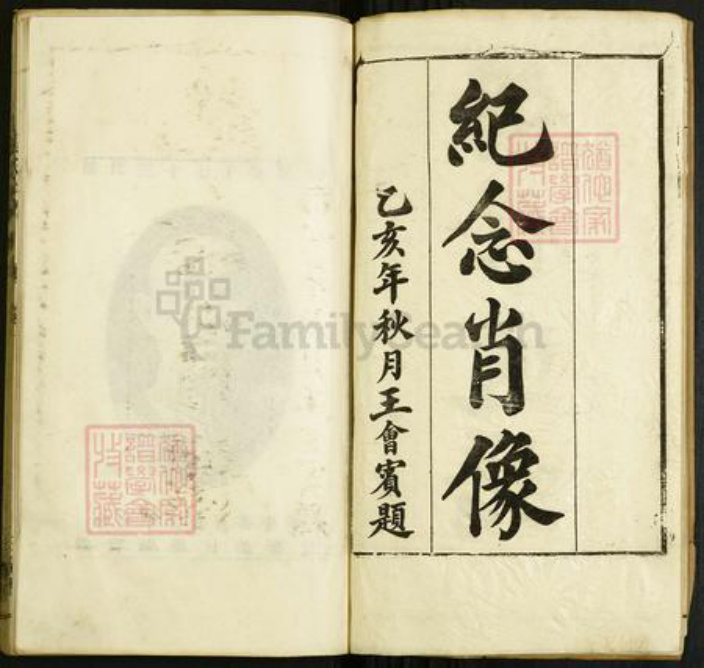 紀念肖像
乙亥年秋月王會賓題
FamilySearch